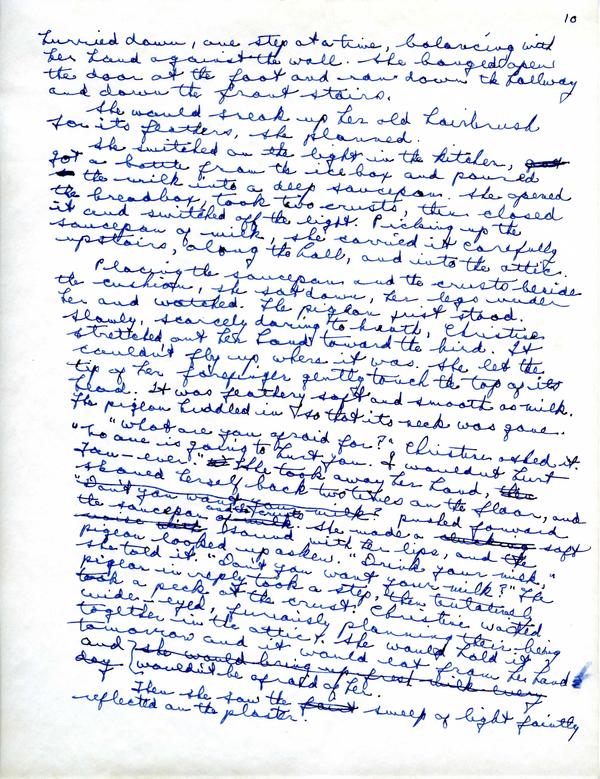 10
hurried down, one step at a time, balancing with
her hand against the wall. She banged open
the door at the foot and ran down the hallway
and down the front stairs.
She would break up her old hairbrush
for its feathers, she planned.
She switched on the light in the kitchen,
got a bottle from the icebox and poured
the milk into a deep saucepan. She opened
the breadbox, took two crusts, then closed
it and switched off the light. Picking up the
saucepan of milk, she carried it carefully
upstairs, along the hall, and into the attic.
Placing the saucepan and the crusts beside
the cushion, she sat down, her legs under
her and watched. The pigeon just stood.
Slowly, scarcely daring to breath, Christine
stretched out her hand toward the bird. It
couldn't fly up, where it was. She let the
tip of her forefinger gently touch the top of its
head. It was feathery soft and smooth as milk.
The pigeon huddled in so that its neck was gone.
"What are you afraid for?" Christine asked it.
"No one is going to hurt you. I wouldn't hurt
you—ever." She took away her hand,
shoved herself back two times on the floor, and
"Don't you want your milk? pushed forward
the saucepan of milk. She made a soft
sound with her lips, and the
pigeon looked up askew. "Drink your milk,"
she told it. "Don't you want your milk?" The
pigeon in reply took a step, then tentatively
took a peck at the crust. Christine waited
wide-eyed, furiously planning their being
together in the attic. She would hold it
tomorrow and it would eat from her hand
and she would bring up fresh milk every
day wouldn't be afraid of her.
Then she saw the sweep of light faintly
reflected on the plaster.